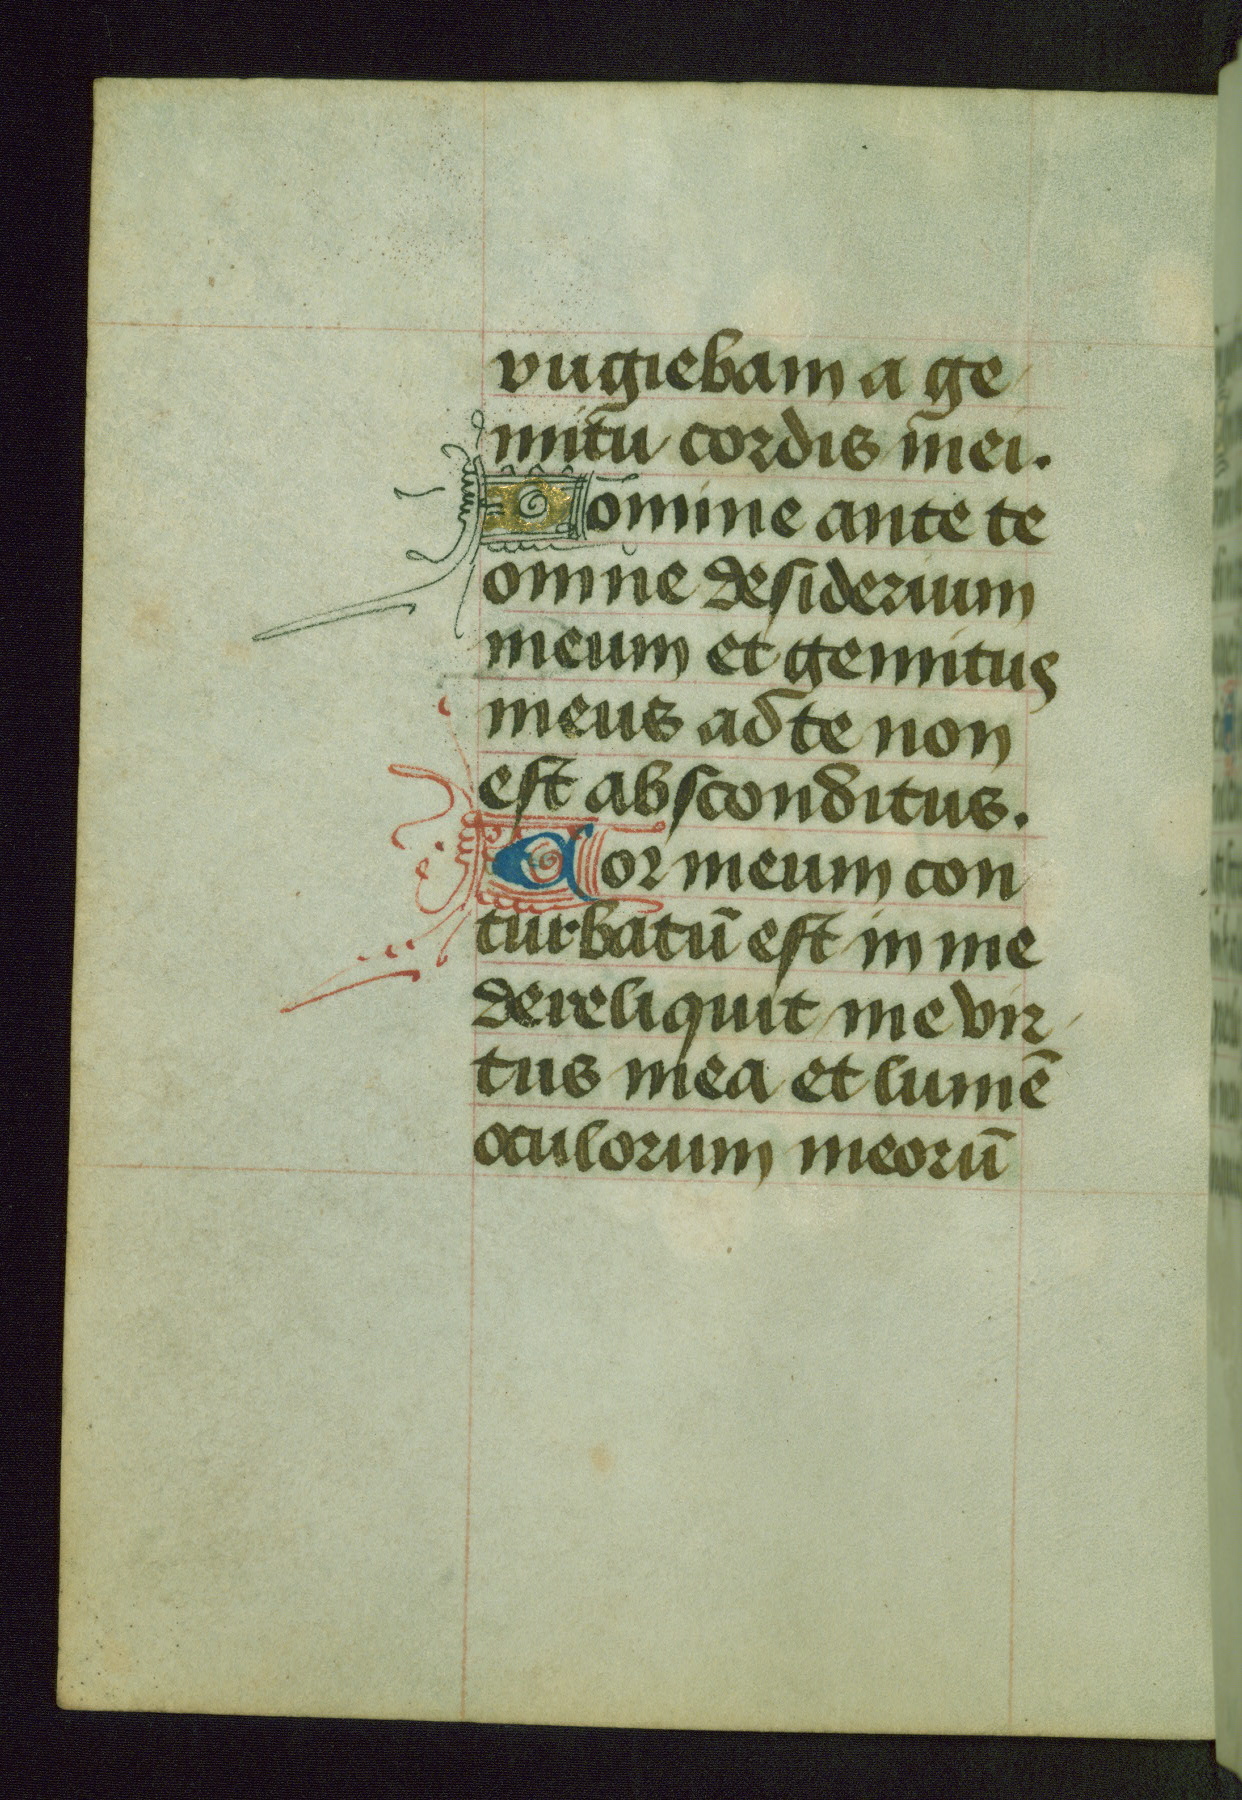 rugiebam a ge
mitu cordis mei.
Domine ante te
omne desiderium
meum et gemitus
meus ad te non
est absconditus.
Cor meum con
turbatū est in me
dereliquit me vir
tus mea et lumē
oculorum meorū